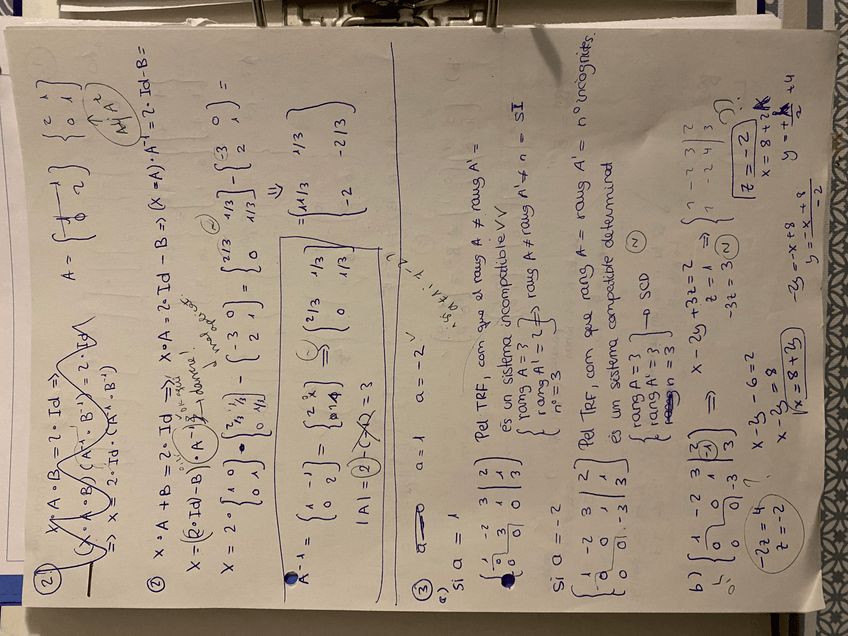 2) X·A·B = 2·Id ⇒
(X·A·B)(A⁻¹·B⁻¹) = 2·Id
⇒ X = 2·Id·(A⁻¹·B⁻¹)
A = { 1 -1
0 2 } { 2 1
0 1 }
2) X·A + B = 2·Id ⇒ X·A = 2·Id - B ⇒ (X·A)·A⁻¹ = 2·Id - B =
X = (2·Id) - B)·A⁻¹
X = 2·{ 1 0
0 1 } · { 2/3 1/3
0 1/3 } - { -3 0
2 1 } = { 2/3 1/3
0 1/3 } - { -3 0
2 1 } =
= { 11/3 1/3
-2 -2/3 }
A⁻¹ = { 1 -1
0 2 } = ⇒ { 2/3 1/3
0 1/3 }
|A| = 2 = 3
3) a = 0 a = 1 a = -2 ✓
a)
Si a = 1
{ 1 -2 3 | 2
0 3 1 | 1
0 0 0 | 3 }
Pel TRF, com que el rang A ≠ rang A' =
és un sistema incompatible ✓✓
{ rang A = 3
rang A' = 2
n° = 3 } ⇒ rang A ≠ rang A' ≠ n = SI
Si a = -2
{ 1 -2 3 | 2
0 0 1 | 1
0 0 -3 | 3 }
Pel TRF, com que rang A = rang A' = n° incògnites.
és un sistema compatible determinat
{ rang A = 3
rang A' = 3
n = 3 } → SCD
b) { 1 -2 3 | 2
0 0 1 | -1
0 0 -3 | 3 } ⇒ x - 2y + 3z = 2
z = 1
-3z = 3 ⇒ { 1 -2 3 | 2
1 -2 4 | 3
-2z = 4
z = -2
x - 2y - 6 = 2
x - 2y = 8
x = 8 + 2y
-2y = -x + 8
y = -x + 8
-2
z = -2
x = 8 + 2
y = + x
2 + 4